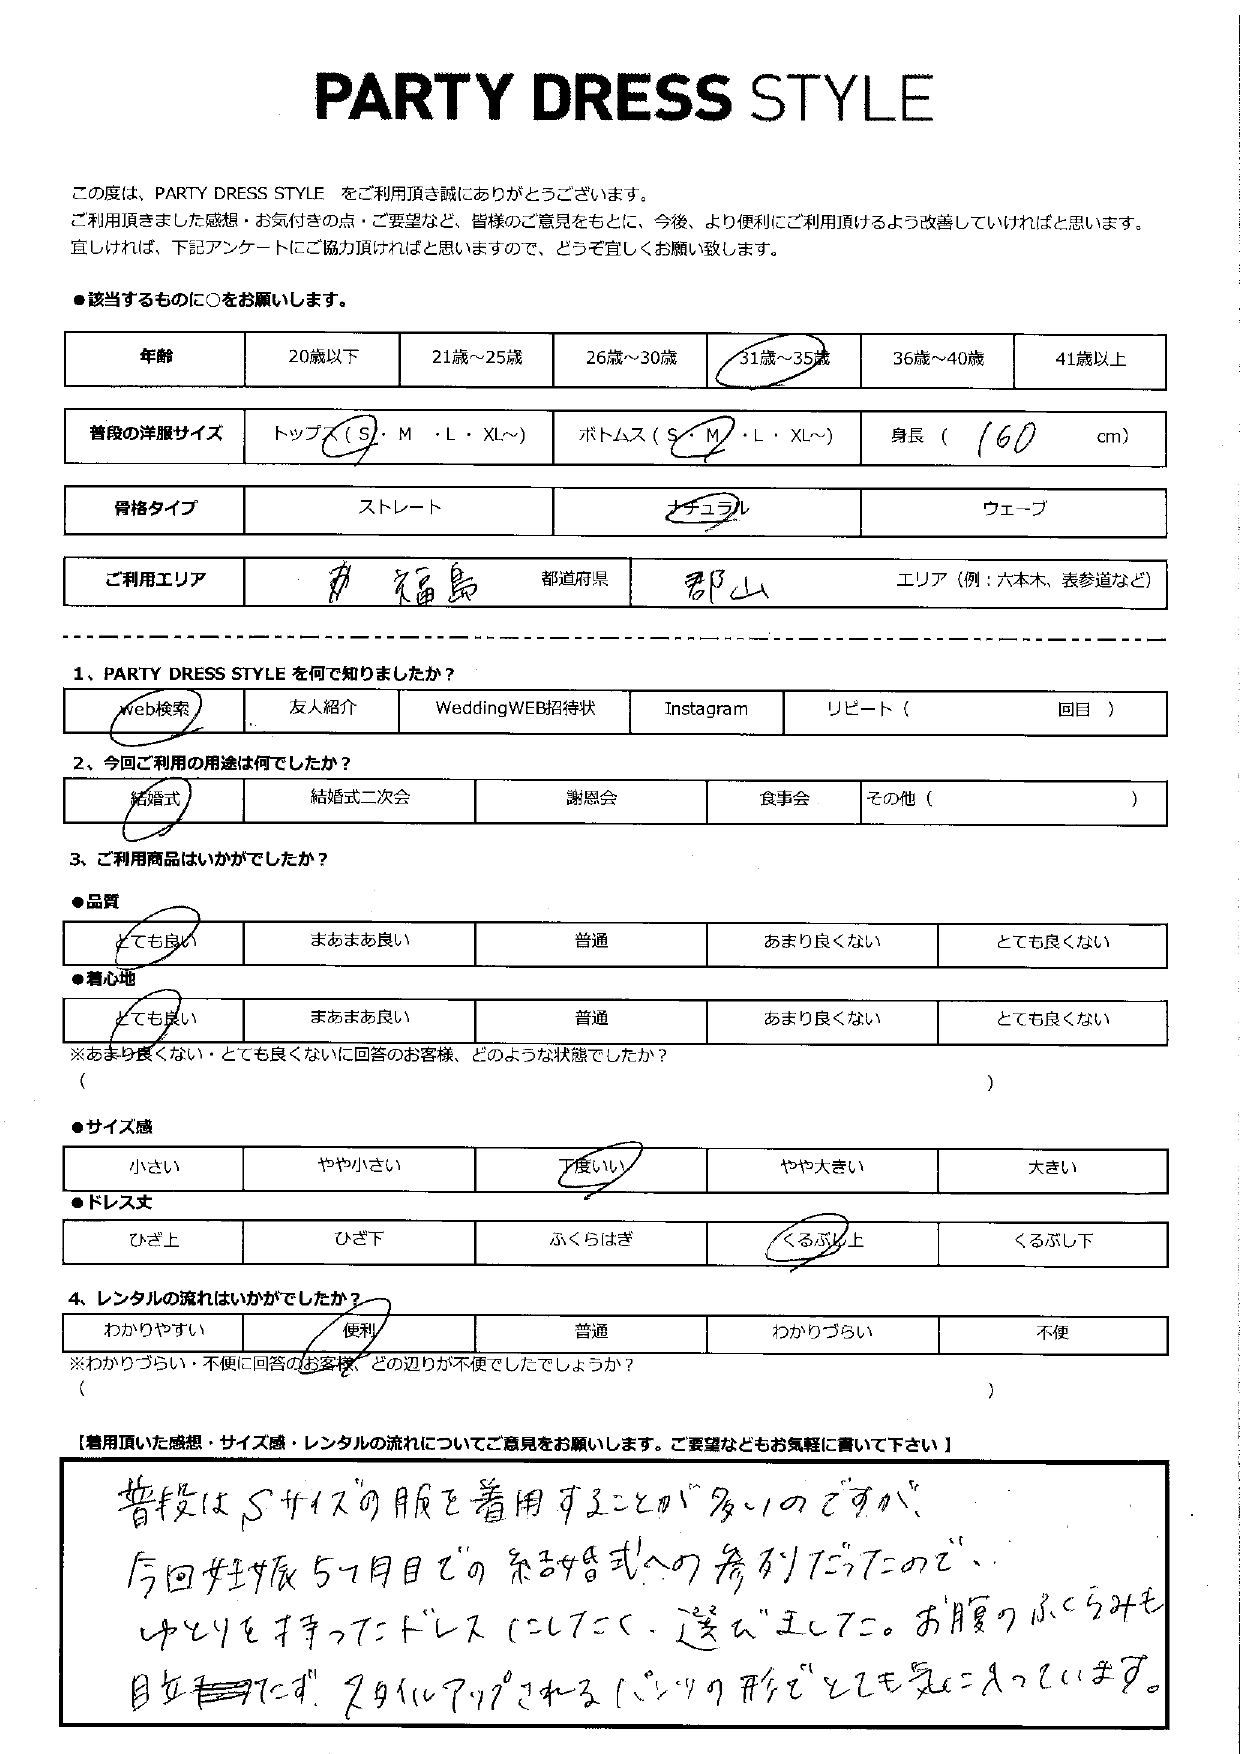 PARTY DRESS STYLE
この度は、PARTY DRESS STYLE をご利用頂き誠にありがとうございます。
ご利用頂きました感想・お気付きの点・ご要望など、皆様のご意見をもとに、今後、より便利にご利用頂けるよう改善していければと思います。
宜しければ、下記アンケートにご協力頂ければと思いますので、どうぞ宜しくお願い致します。
●該当するものに○をお願いします。
年齢 20歳以下 21歳～25歳 26歳～30歳 31歳～35歳 36歳～40歳 41歳以上
普段の洋服サイズ トップス ( S ・ M ・L ・ XL～) ボトムス ( S ・ M ・L ・ XL～) 身長 ( 160 cm)
骨格タイプ ストレート ナチュラル ウェーブ
ご利用エリア 福島 都道府県 郡山 エリア（例：六本木、表参道など）
1、PARTY DRESS STYLE を何で知りましたか？
Web検索 友人紹介 WeddingWEB招待状 Instagram リピート（ 回目 ）
2、今回ご利用の用途は何でしたか？
結婚式 結婚式二次会 謝恩会 食事会 その他（ ）
3、ご利用商品はいかがでしたか？
●品質
とても良い まあまあ良い 普通 あまり良くない とても良くない
●着心地
とても良い まあまあ良い 普通 あまり良くない とても良くない
※あまり良くない・とても良くないに回答のお客様、どのような状態でしたか？
（ ）
●サイズ感
小さい やや小さい 丁度いい やや大きい 大きい
●ドレス丈
ひざ上 ひざ下 ふくらはぎ くるぶし上 くるぶし下
4、レンタルの流れはいかがでしたか？
わかりやすい 便利 普通 わかりづらい 不便
※わかりづらい・不便に回答のお客様、どの辺りが不便でしたでしょうか？
（ ）
【着用頂いた感想・サイズ感・レンタルの流れについてご意見をお願いします。ご要望などもお気軽に書いて下さい 】
普段はSサイズの服を着用することが多いのですが、
今回妊娠5ヶ月目での結婚式への参列だったので、
ゆとりを持ったドレスにしたく、選びました。お腹のふくらみも
目立たず、スタイルアップされるパンツの形でとても気に入っています。